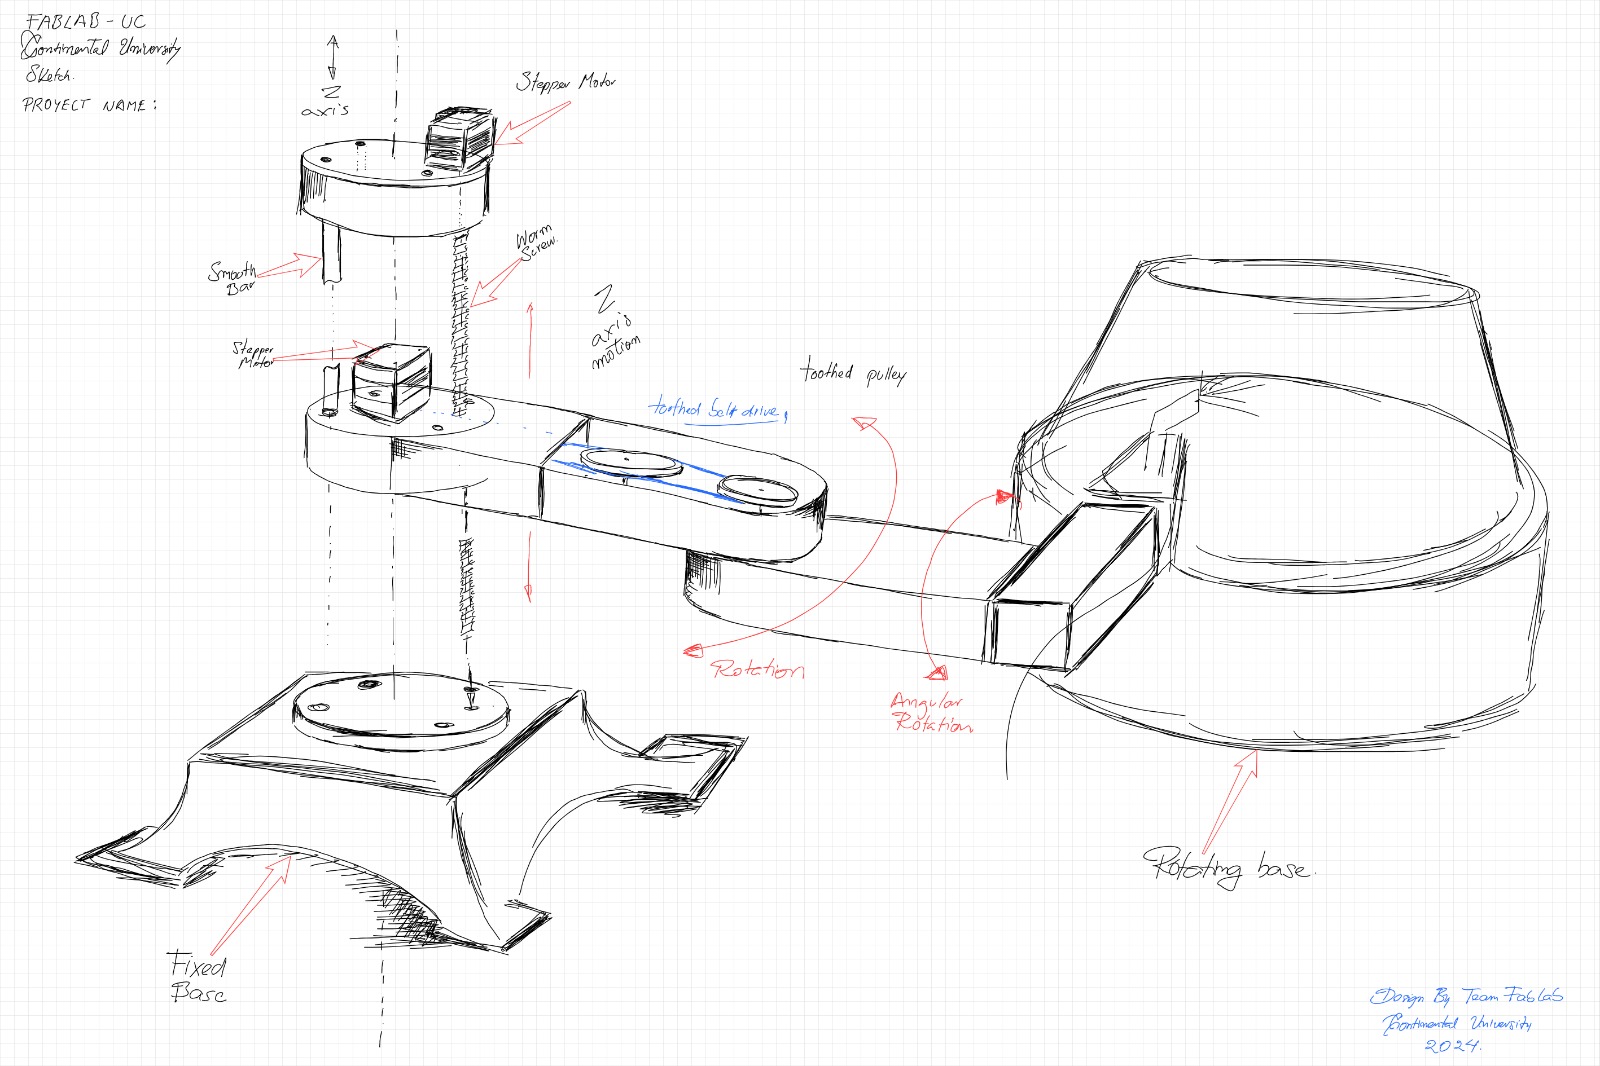 FABLAB - UC
Continental University
Sketch.
PROYECT NAME:
Z
axis
Stepper Motor
Worm
Screw.
Smooth
Bar
Z
axis
motion
Stepper
Motor
toothed pulley
toothed belt drive,
Rotation
Angular
Rotation
Rotating base.
Fixed
Base
Design By Team FabLab
Continental University
2024.